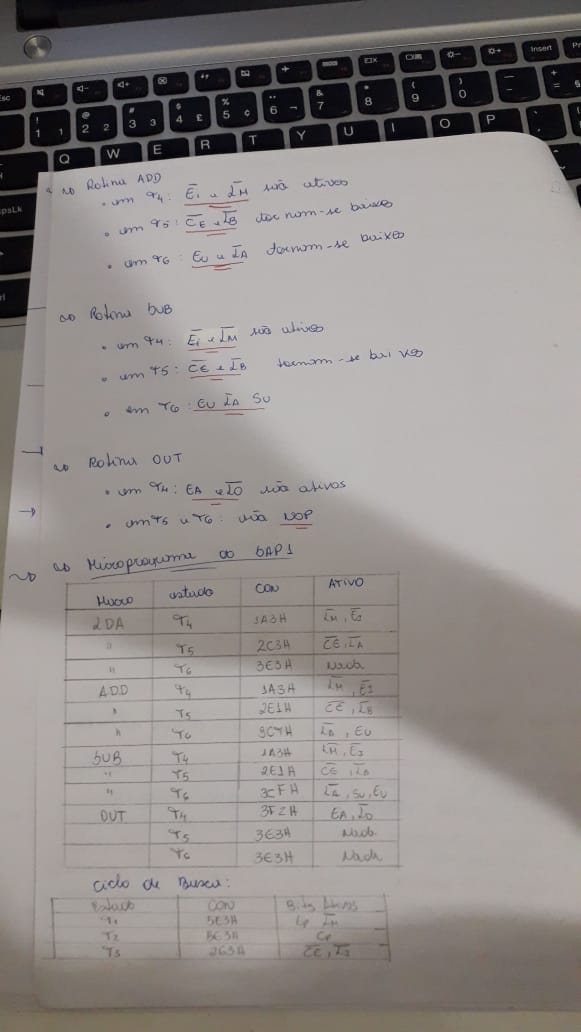 Esc
! 1 1
@ 2 2
# 3 3
$ 4 £
% 5 ¢
¨ 6 ¬
& 7
* 8
( 9
) 0
+ =
Insert
Q W E R T Y U I O P
CapsLk
Rotina ADD
• em T4: E̅i e L̅M são ativos
• em T5: C̅E̅ e L̅B tornam-se baixos
• em T6: EU e L̅A tornam-se baixos
Rotina SUB
• em T4: E̅i e L̅M são ativos
• em T5: C̅E̅ e L̅B tornam-se baixos
• em T6: EU L̅A SU
Rotina OUT
• em T4: EA e L̅O̅ são ativos
• em T5 e T6: são NOP
Microprograma do SAP1
Macro estado CON ATIVO
LDA T4 1A3H L̅M, E̅I
" T5 2C3H C̅E̅, L̅A
" T6 3E3H Nada
ADD T4 1A3H L̅M, E̅I
" T5 2E1H C̅E̅, L̅B
" T6 3C7H L̅A, EU
SUB T4 1A3H L̅M, E̅I
" T5 2E1H C̅E̅, L̅B
" T6 3CFH L̅A, SU, EU
OUT T4 3F2H EA, L̅O
T5 3E3H Nada
T6 3E3H Nada
Ciclo de Busca:
Estado CON Bits Ativos
T1 5E3H Ep L̅M
T2 BE3H Cp
T3 263H C̅E̅, L̅I